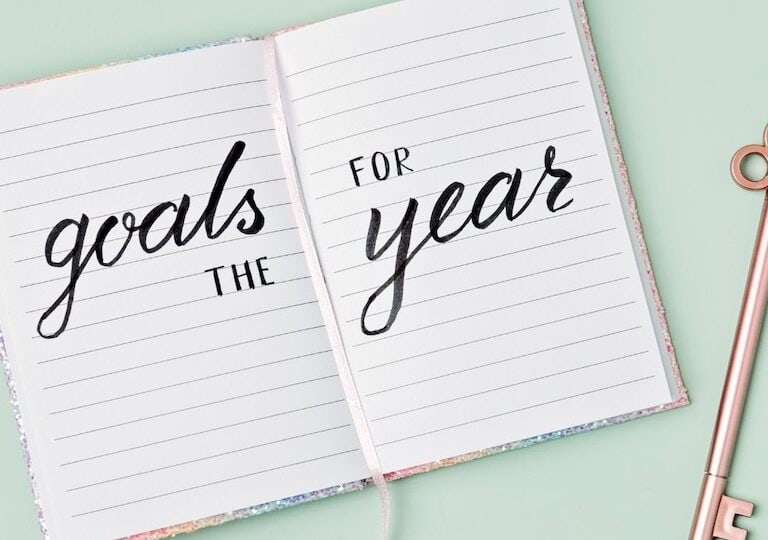 goals FOR
THE year